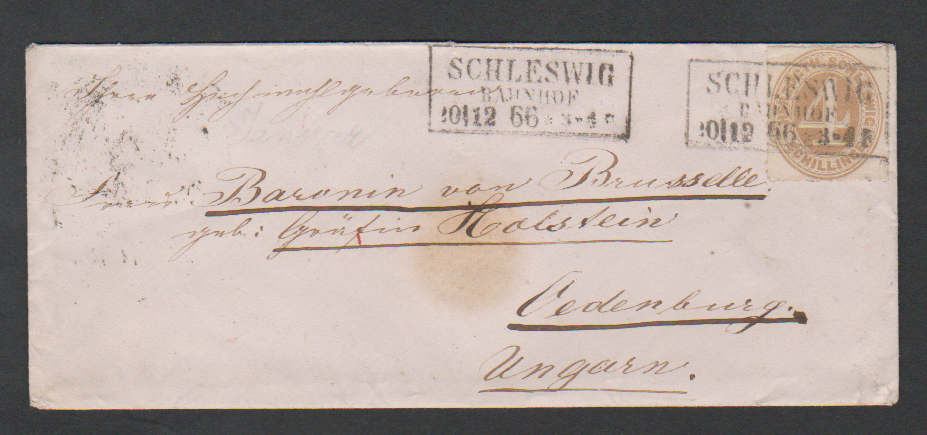 SCHLESWIG
BAHNHOF
20|12 66 3-4
SCHLESWIG
BAHNHOF
20|12 66 3-4
4
SCHILLING
Ihrer Hochwohlgeboren
Frau Baronin von Brusselle
geb: Gräfin Holstein
Oedenburg.
Ungarn.